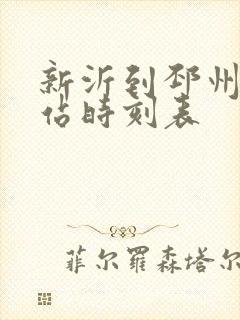 新沂到邳州
佔時刻表
菲尔羅森塔尔